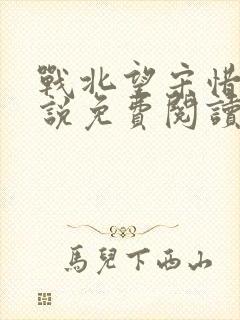 戰北望宋惜
說免費閱讀
馬兒下西山